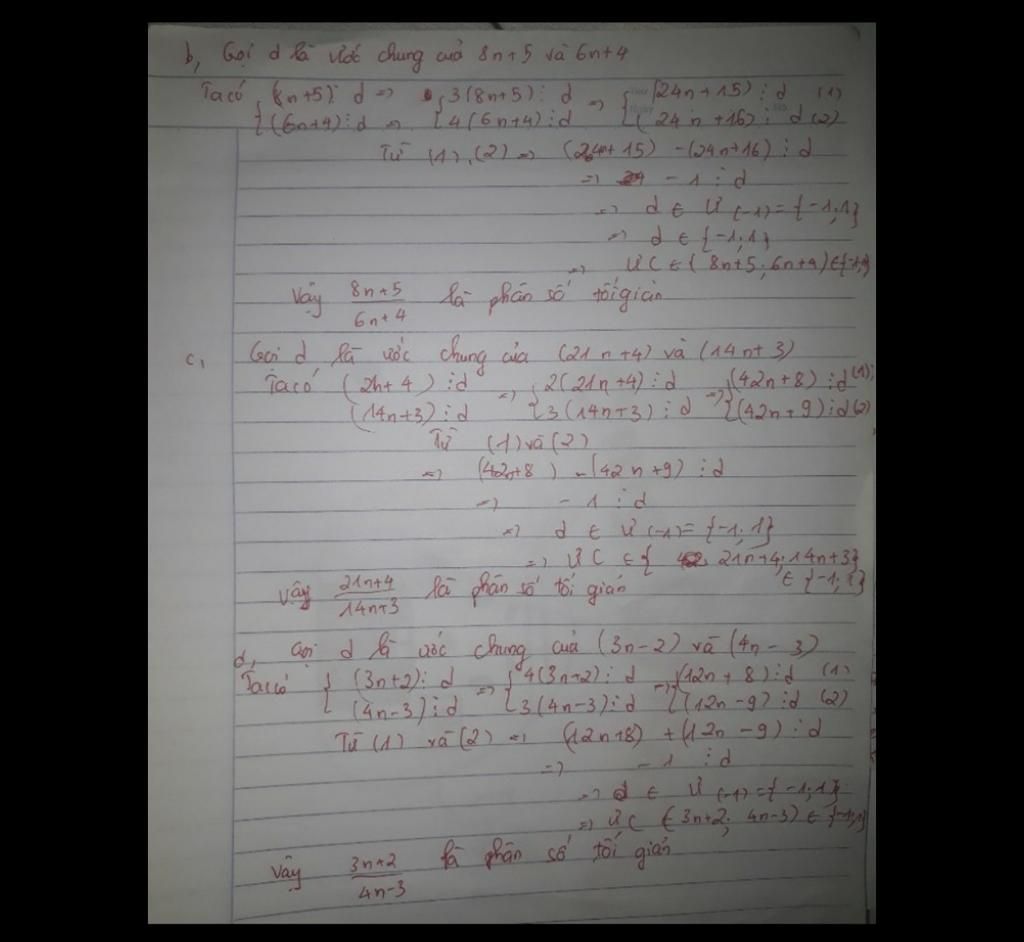 b, Gọi d là ước chung cuả 8n+5 và 6n+4
Ta có { (8n+5) ⋮ d => { 3(8n+5) ⋮ d => { (24n+15) ⋮ d (1)
(6n+4) ⋮ d => 4(6n+4) ⋮ d (24n+16) ⋮ d (2)
Từ (1), (2) => (24n+15) - (24n+16) ⋮ d
=> - 1 ⋮ d
=> d ∈ Ư(-1) = {-1; 1}
=> d ∈ {-1; 1}
=> ƯC ∈ (8n+5; 6n+4) ∈ {-1; 1}
Vậy 8n+5/6n+4 là phân số tối giản
c, Gọi d là ước chung của (21n+4) và (14n+3)
Ta có (2n+4) ⋮ d => { 2(21n+4) ⋮ d => { (42n+8) ⋮ d (1)
(14n+3) ⋮ d 3(14n+3) ⋮ d (42n+9) ⋮ d (2)
Từ (1) và (2)
=> (42n+8) - (42n+9) ⋮ d
=> - 1 ⋮ d
=> d ∈ Ư(-1) = {-1; 1}
=> ƯC ∈ { 21n+4; 14n+3}
∈ {-1; 1}
Vậy 21n+4/14n+3 là phân số tối giản
d, Gọi d là ước chung cuả (3n-2) và (4n-3)
Ta có { (3n+2) ⋮ d => { 4(3n+2) ⋮ d => { (12n+8) ⋮ d (1)
(4n-3) ⋮ d 3(4n-3) ⋮ d (12n-9) ⋮ d (2)
Từ (1) và (2) => (12n+8) + (12n-9) ⋮ d
=> - 1 ⋮ d
=> d ∈ Ư(-1) = {-1; 1}
=> ƯC (3n+2; 4n-3) ∈ {-1; 1}
Vậy 3n+2/4n-3 là phân số tối giản